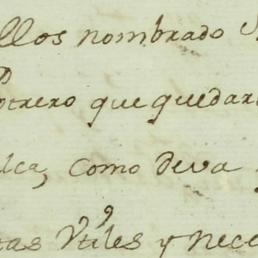 llos nombrado
otrero que quedar
lca, como deva
tas Vtiles y nece